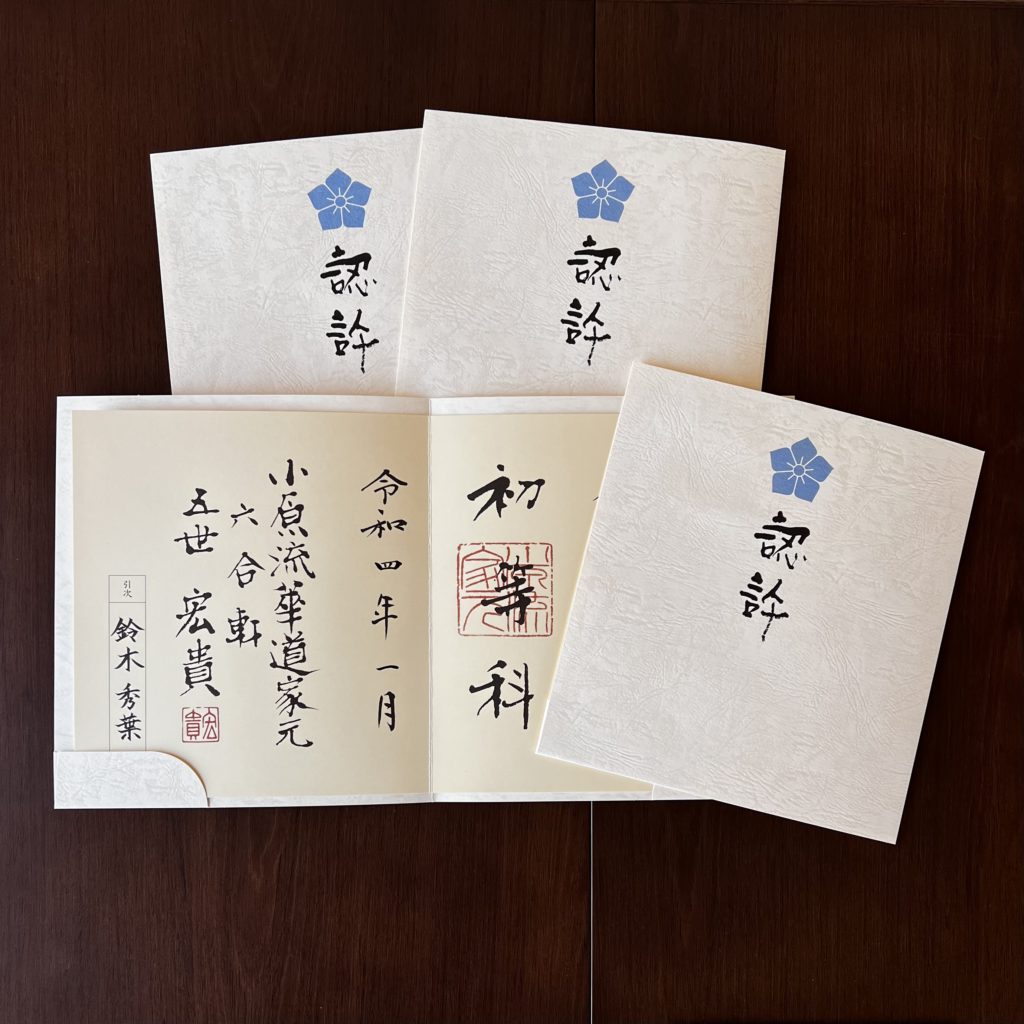 認許
認許
認許
初等科
令和四年一月
小原流華道家元
六合軒
五世 宏貴
宏貴
引次
鈴木秀葉